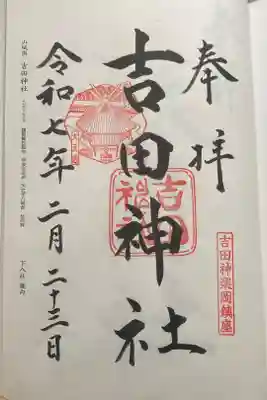 奉拝
吉田神楽岡鎮座
吉田神社
令和七年二月二十三日
山城国 吉田神社